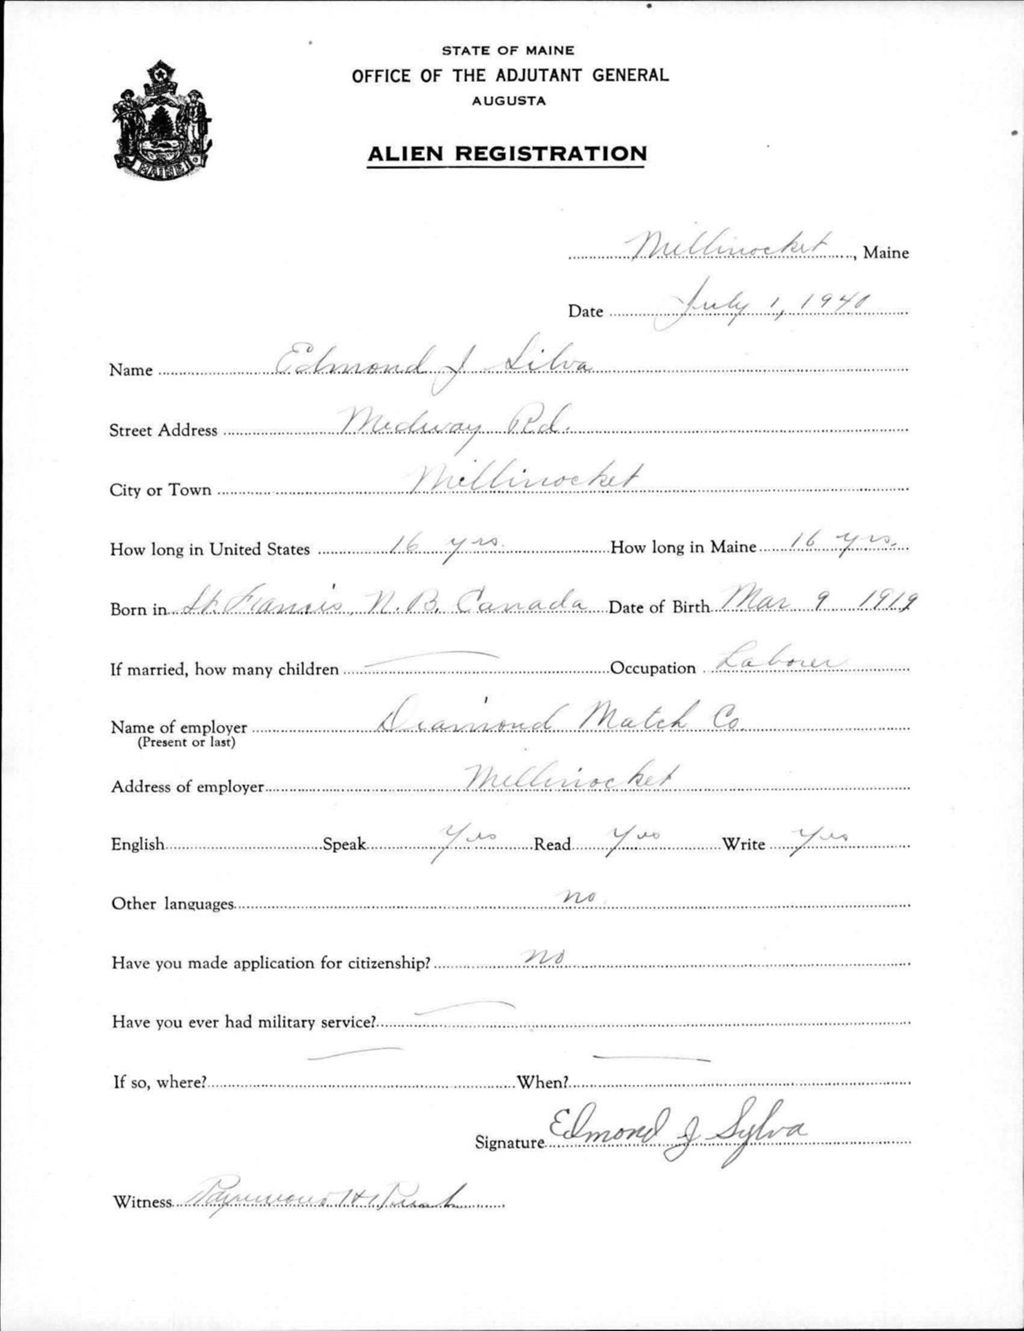 STATE OF MAINE
OFFICE OF THE ADJUTANT GENERAL
AUGUSTA
ALIEN REGISTRATION
MAINE
Millinocket, Maine
Date July 1, 1940
Name Edmond J Silva
Street Address Medway Rd.
City or Town Millinocket
How long in United States 16 yrs. How long in Maine 16 yrs.
Born in St. Francis, N.B. Canada Date of Birth Mar 9 1919
If married, how many children — Occupation Laborer
Name of employer Diamond Match Co.
(Present or last)
Address of employer Millinocket
English Speak Yes Read Yes Write Yes
Other languages no
Have you made application for citizenship? no
Have you ever had military service? —
If so, where? — When? —
Signature Edmond J Sylva
Witness Raymond H